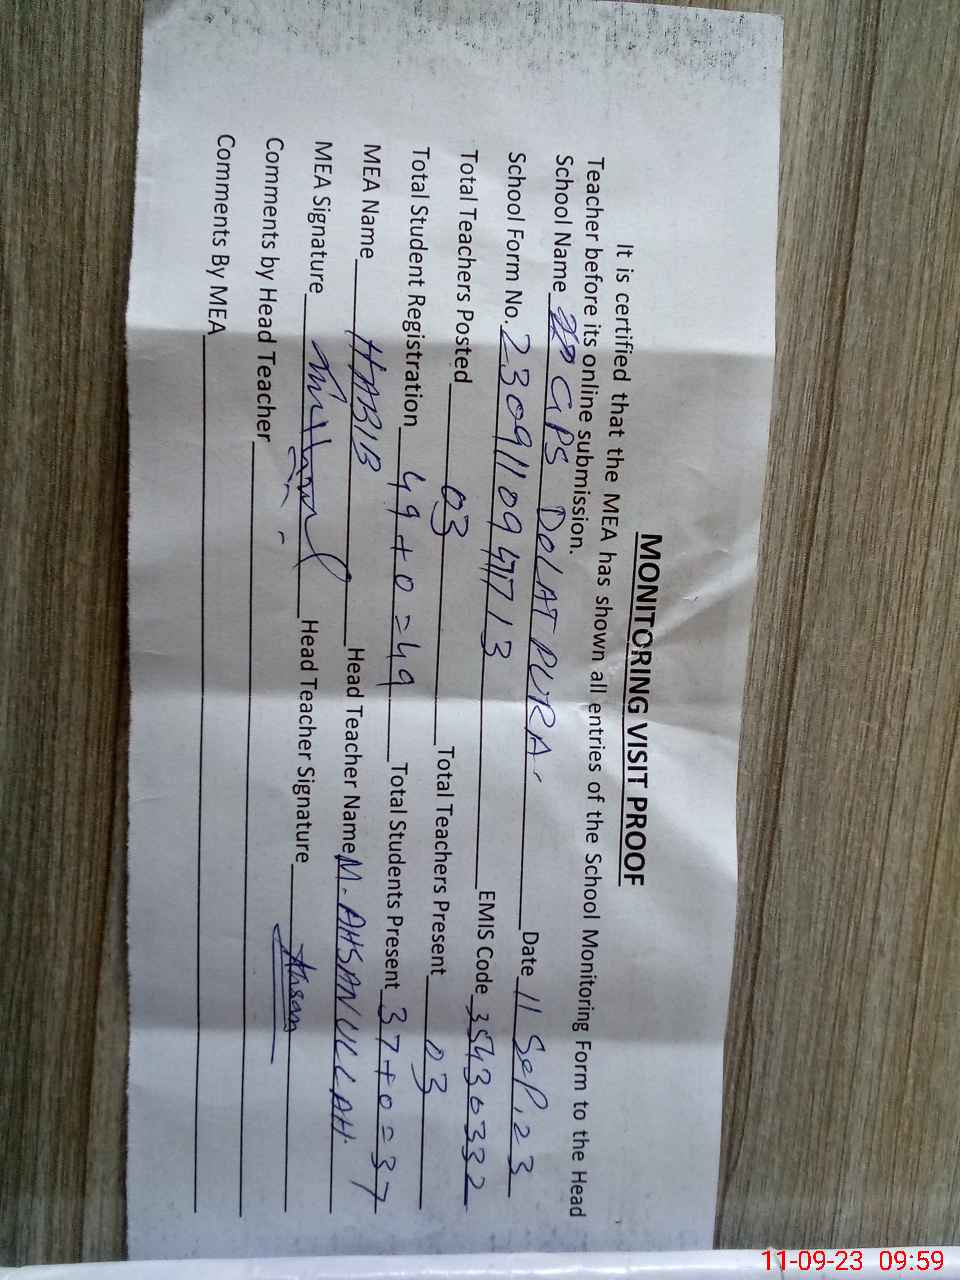 MONITORING VISIT PROOF
It is certified that the MEA has shown all entries of the School Monitoring Form to the Head
Teacher before its online submission.
School Name GPS DOLAT PURA Date 11 SeP, 23
School Form No. 2309110947713 EMIS Code 35430332
Total Teachers Posted 03 Total Teachers Present 03
Total Student Registration 49+0=49 Total Students Present 37+0=37
MEA Name HABIB Head Teacher Name M. AHSANULLAH
MEA Signature Head Teacher Signature Ahsan
Comments by Head Teacher
Comments By MEA
11-09-23 09:59